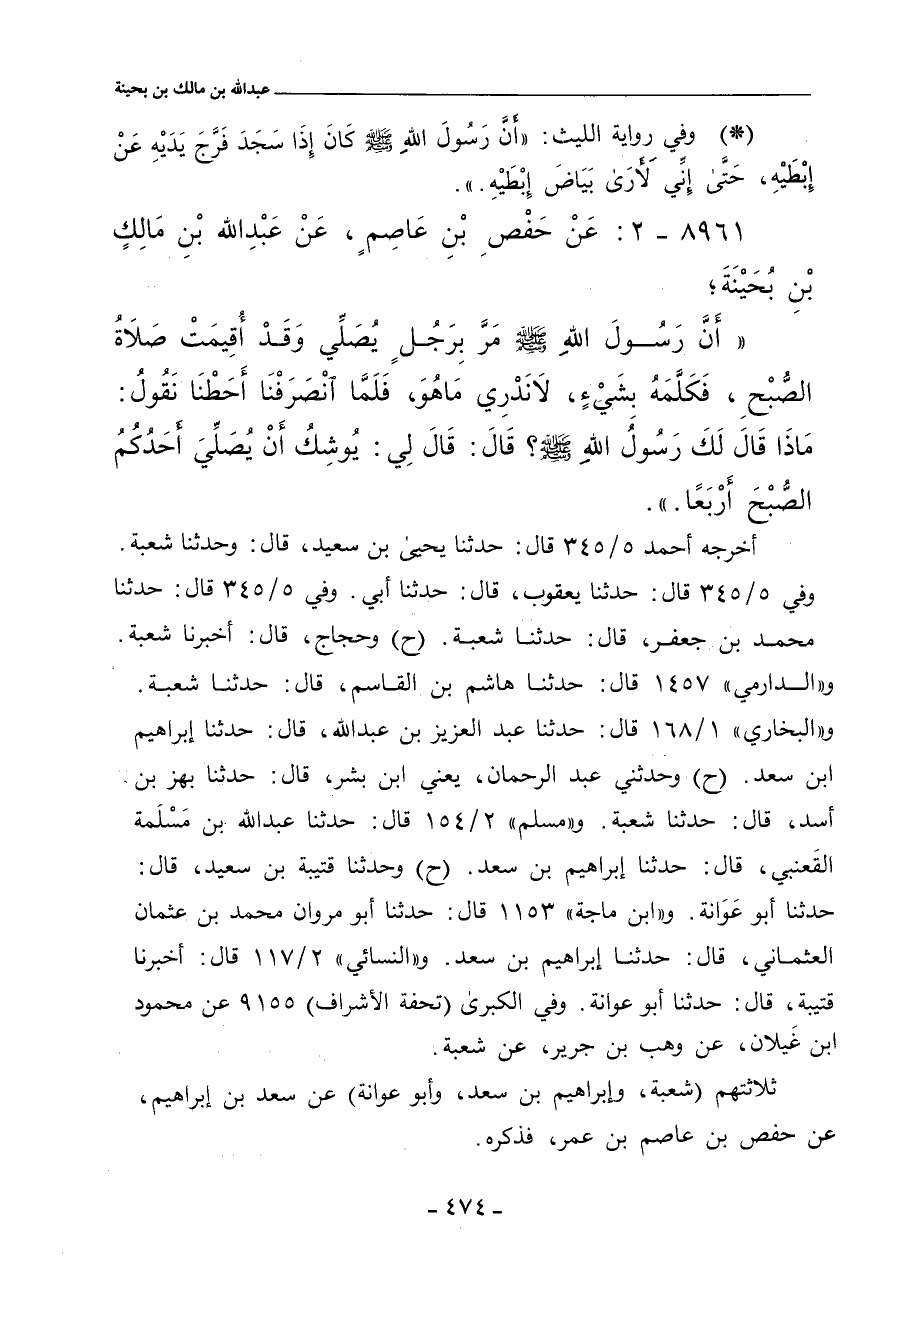 عبدالله بن مالك بن بحينة
(*) وفي رواية الليث: «أَنَّ رَسُولَ اللهِ ﷺ كَانَ إِذَا سَجَدَ فَرَّجَ يَدَيْهِ عَنْ
إِبْطَيْهِ، حَتَّىٰ إِنِّي لَأَرَىٰ بَيَاضَ إِبْطَيْهِ.».
٨٩٦١ - ٢: عَنْ حَفْصِ بْنِ عَاصِمٍ، عَنْ عَبْدِاللهِ بْنِ مَالِكٍ
بْنِ بُحَيْنَةَ؛
« أَنَّ رَسُولَ اللهِ ﷺ مَرَّ بِرَجُلٍ يُصَلِّي وَقَدْ أُقِيمَتْ صَلَاةُ
الصُّبْحِ، فَكَلَّمَهُ بِشَيْءٍ، لَانَدْرِي مَاهُوَ، فَلَمَّا ٱنْصَرَفْنَا أَحَطْنَا نَقُولُ:
مَاذَا قَالَ لَكَ رَسُولُ اللهِ ﷺ؟ قَالَ: قَالَ لِي: يُوشِكُ أَنْ يُصَلِّيَ أَحَدُكُمُ
الصُّبْحَ أَرْبَعًا.».
أخرجه أحمد ٣٤٥/٥ قال: حدثنا يحيىٰ بن سعيد، قال: وحدثنا شعبة.
وفي ٣٤٥/٥ قال: حدثنا يعقوب، قال: حدثنا أبي. وفي ٣٤٥/٥ قال: حدثنا
محمد بن جعفر، قال: حدثنا شعبة. (ح) وحجاج، قال: أخبرنا شعبة.
و«الدارمي» ١٤٥٧ قال: حدثنا هاشم بن القاسم، قال: حدثنا شعبة.
و«البخاري» ١٦٨/١ قال: حدثنا عبد العزيز بن عبدالله، قال: حدثنا إبراهيم
ابن سعد. (ح) وحدثني عبد الرحمان، يعني ابن بشر، قال: حدثنا بهز بن
أسد، قال: حدثنا شعبة. و«مسلم» ١٥٤/٢ قال: حدثنا عبدالله بن مَسْلَمة
القَعنبي، قال: حدثنا إبراهيم بن سعد. (ح) وحدثنا قتيبة بن سعيد، قال:
حدثنا أبو عَوَانة. و«ابن ماجة» ١١٥٣ قال: حدثنا أبو مروان محمد بن عثمان
العثماني، قال: حدثنا إبراهيم بن سعد. و«النسائي» ١١٧/٢ قال: أخبرنا
قتيبة، قال: حدثنا أبو عوانة. وفي الكبرىٰ (تحفة الأشراف) ٩١٥٥ عن محمود
ابن غَيلان، عن وهب بن جرير، عن شعبة.
ثلاثتهم (شعبة، وإبراهيم بن سعد، وأبو عوانة) عن سعد بن إبراهيم،
عن حفص بن عاصم بن عمر، فذكره.
- ٤٧٤ -